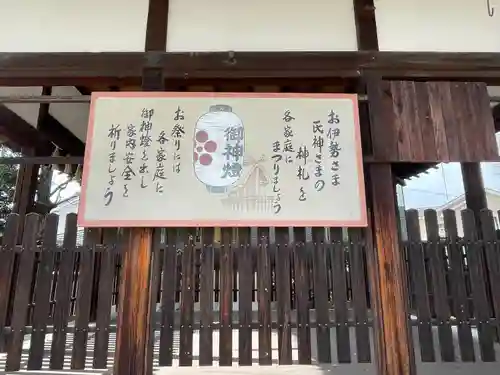 お伊勢さま
氏神さまの
神札を
各家庭に
まつりましょう
御神燈
お祭りには
各家庭に
御神燈を出し
家内安全を
祈りましょう